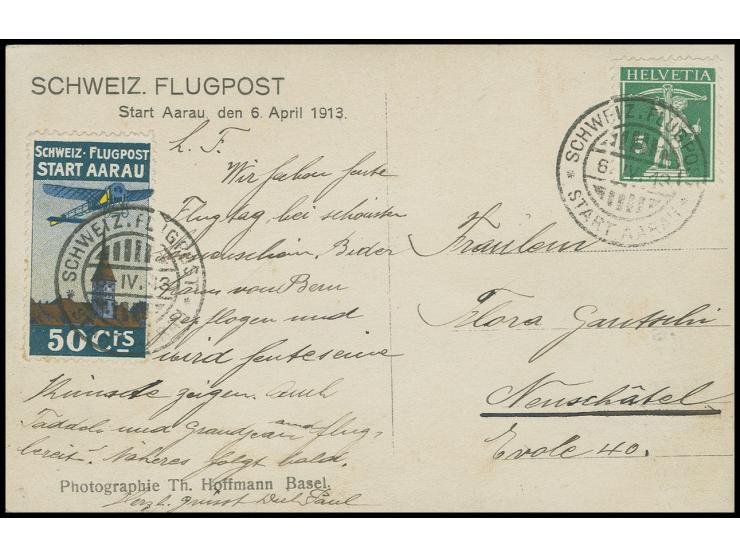 SCHWEIZ. FLUGPOST
Start Aarau, den 6. April 1913.
SCHWEIZ-FLUGPOST
START AARAU
50 Cts
SCHWEIZ. FLUGPOST
IV. 13
HELVETIA
5
SCHWEIZ. FLUGPOST
START AARAU
L. F.
Wir haben heute
Flugtag bei schönsten
Sonnenschein. Bider
kam von Bern
geflogen und
wird heute seine
Künste zeigen. Auch
Taddeoli und Grandjean sind flug-
bereit. Näheres folgt bald.
Herzl. grüsst Dich Paul
Photographie Th. Hoffmann Basel.
Fräulein
Flora Gautschi
Neuschâtel
Evole 40.